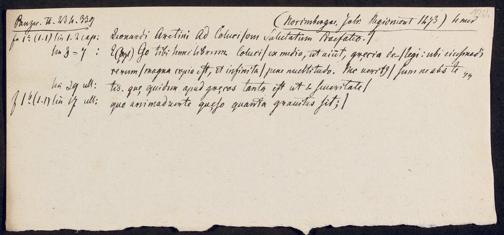 Panzer. II. 234. 339 (Norimbergae, Joh. Regiomont 1473)
f 1ᵃ (1.1) lin 1. 2 cap: Leonardi Aretini Ad Coluci/um Salutatum Praefatio.
lin 3 – 7 : Go tibi hunc librum Coluci/ ex media, ut aiunt, grecia de-/legi: ubi eiusmodi
rerum/ magna copia est, et infinita/ pene multitudo. Nec
lin 29 ult: tis. que quidem apud grecos tanta est ut &
f 1ᵇ (1.1) lin 17 ult: quo animadverte queso quanta gravitas sit;/